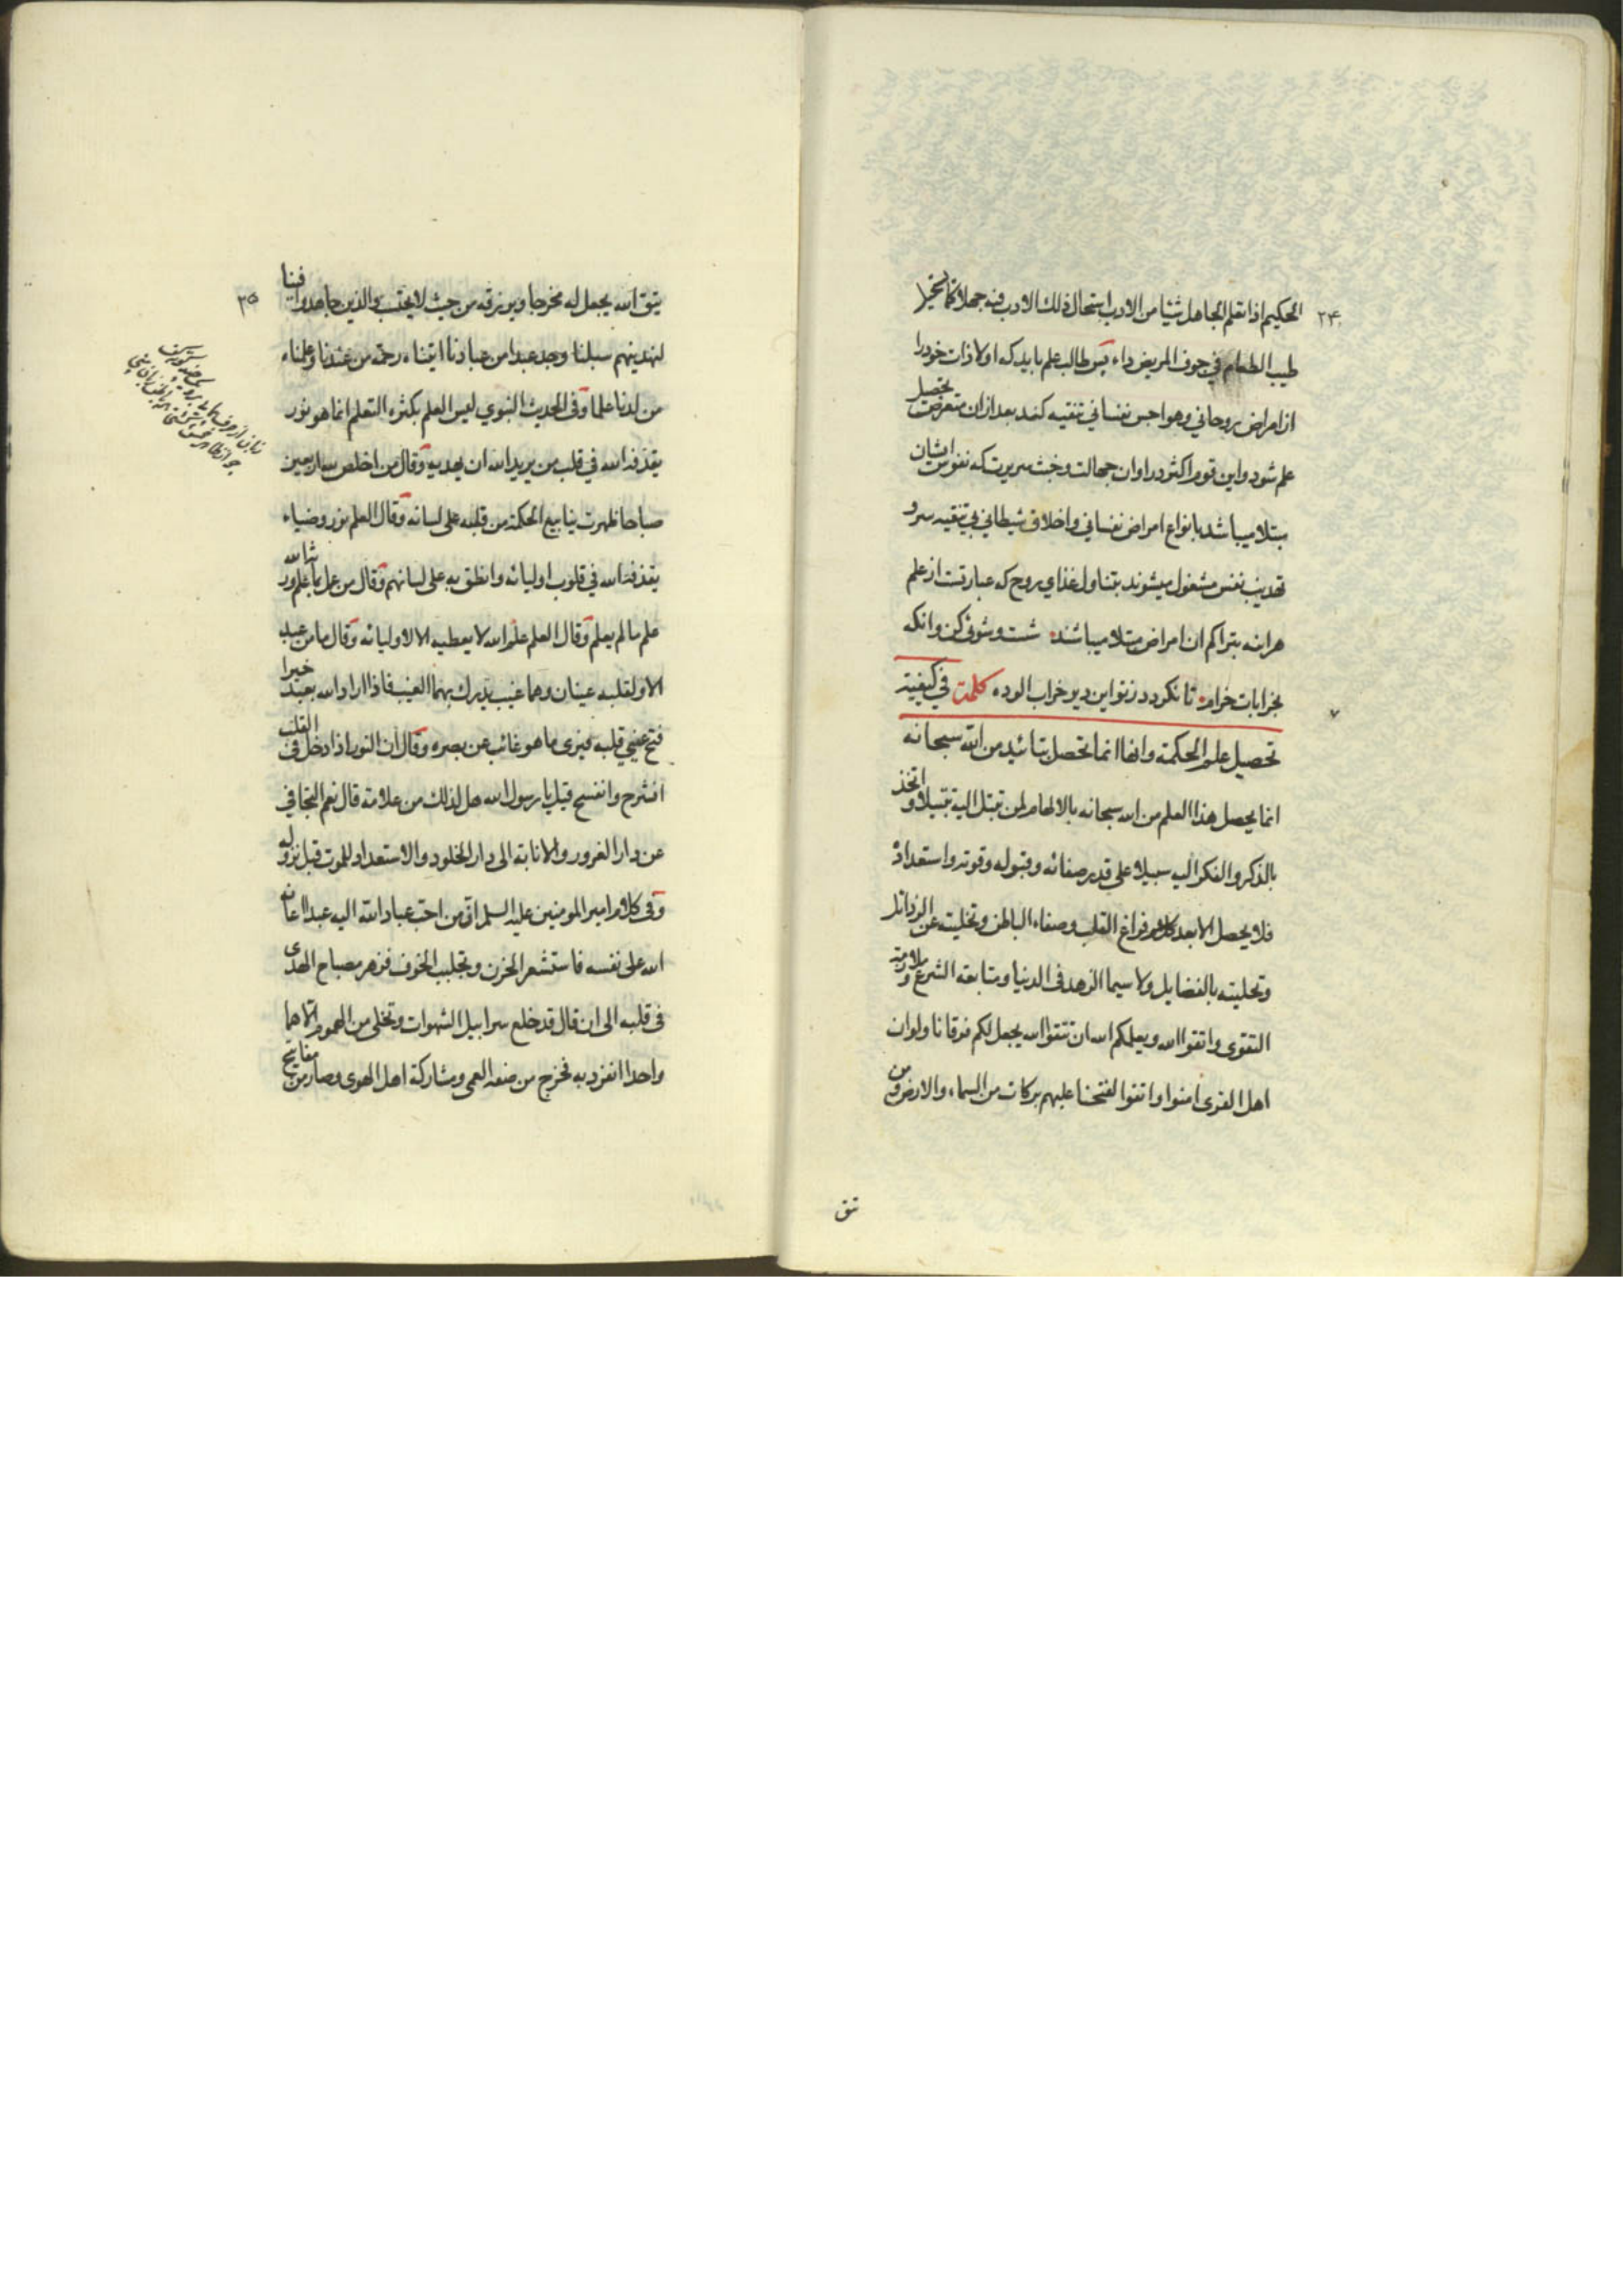 ۲۴
الحكيم اذا تعلم الجاهل شيئا من الادب استحال ذلك الادب فيه جهلا كما يستحيل
طيب الطعام في جوف المريض داء پس طالب علم بايد كه اولا ذات خود را
از امراض روحاني وهواجس نفساني تنقيه كند بعد از ان متعرض تحصيل
علم شود واين قوم اكثر در اوان جهالت وخبث سريرت كه نفوس ايشان
مبتلا ميباشد بانواع امراض نفساني واخلاق شيطاني بي تنقيه سر و
تهذيب نفس مشغول ميشوند بتناول غذاي روح كه عبارتست از علم
هراينه بتراكم ان امراض مبتلا ميباشند شست وشوئي كن وانكه
بخرابات خرام تا نكردد ز تو اين دير خراب الوده كلمة في كيفية
تحصيل علم الحكمة وانها انما تحصل بتائيد من الله سبحانه
انما يحصل هذا العلم من الله سبحانه بالالهام لمن تبتل اليه تبتيلا واتخذ
بالذكر والفكر اليه سبيلا على قدر صفائه وقبوله وقوته واستعداده
فلا يحصل الا بعد فراغ القلب وصفاء الباطن وتخليته عن الرذائل
وتحليته بالفضايل ولا سيما الزهد في الدنيا ومتابعة الشرع وملازمة
التقوى واتقوا الله ويعلمكم الله ان تتقوا الله يجعل لكم فرقانا ولو ان
اهل القرى امنوا واتقوا لفتحنا عليهم بركات من السماء والارض ومن
يتق
۲۵
يتق الله يجعل له مخرجا ويرزقه من حيث لا يحتسب والذين جاهدوا فينا
لنهدينهم سبلنا وجد عبدا من عبادنا اتيناه رحمة من عندنا وعلمناه
من لدنا علما وفي الحديث النبوي ليس العلم بكثرة التعلم انما هو نور
يقذفه الله في قلب من يريد الله ان يهديه وقال من اخلص لله اربعين
صباحا ظهرت ينابيع الحكمة من قلبه على لسانه وقال العلم نور وضياء
يقذفه الله في قلوب اوليائه وانطق به على لسانهم وقال من عمل بما علم ورثه الله
علم ما لم يعلم وقال العلم علم الله لا يعطيه الا لاوليائه وقال ما من عبد
الا ولقلبه عينان وهما غيب يدرك بهما الغيب فاذا اراد الله بعبد خيرا
فتح عيني قلبه فيرى ما هو غائب عن بصره وقال ان النور اذا دخل في القلب
انشرح وانفسح قيل يا رسول الله هل لذلك من علامة قال نعم التجافي
عن دار الغرور والانابة الى دار الخلود والاستعداد للموت قبل نزوله
وفي كلام امير المومنين عليه السلم ان من احب عباد الله اليه عبدا اعانه
الله على نفسه فاستشعر الحزن وتجلبب الخوف فزهر مصباح الهدى
في قلبه الى ان قال قد خلع سرابيل الشهوات وتخلى من الهموم الا هما
واحدا انفرد به فخرج من صفة العمى ومشاركة اهل الهوى وصار من مفاتيح